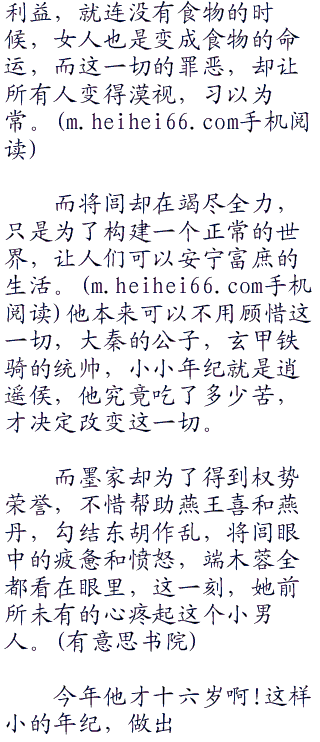 利益，就连没有食物的时
候，女人也是变成食物的命
运，而这一切的罪恶，却让
所有人变得漠视，习以为
常。(m.heihei66.com手机阅
读)
而将闾却在竭尽全力，
只是为了构建一个正常的世
界，让人们可以安宁富庶的
生活。(m.heihei66.com手机
阅读)他本来可以不用顾惜这
一切，大秦的公子，玄甲铁
骑的统帅，小小年纪就是逍
遥侯，他究竟吃了多少苦，
才决定改变这一切。
而墨家却为了得到权势
荣誉，不惜帮助燕王喜和燕
丹，勾结东胡作乱，将闾眼
中的疲惫和愤怒，端木蓉全
都看在眼里，这一刻，她前
所未有的心疼起这个小男
人。(有意思书院)
今年他才十六岁啊!这样
小的年纪，做出